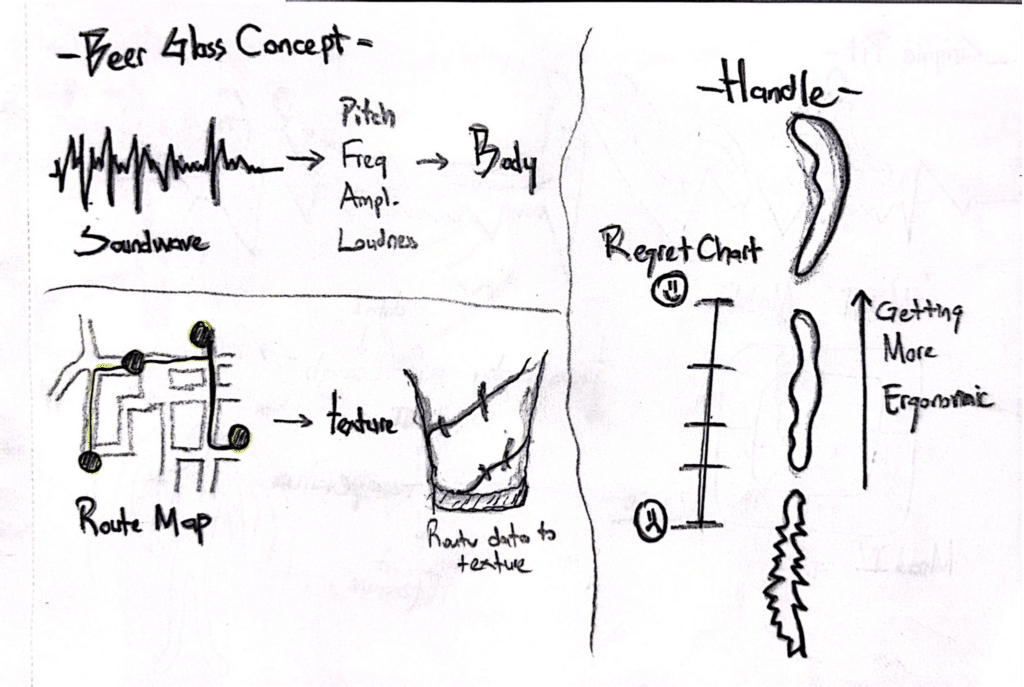 -Beer Glass Concept-
Soundwave
Pitch
Freq
Ampl.
Loudness
Body
Route Map
texture
Route data to
texture
-Handle-
Regret Chart
Getting
More
Ergonomic